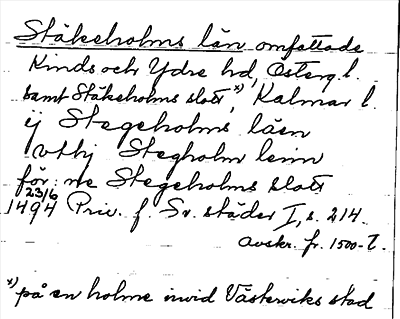 Stäkeholms län omfattade
Kinds och Ydre hd, Österg l.
samt Stäkeholms slott,*) Kalmar l.
ij Stegeholms läen
vthj Stegholm leim
för:ne Stegeholms slott
23/6
1494 Priv. f. Sv. städer I, s. 214.
avskr. fr. 1500-t.
*) på en holme invid Västerviks stad